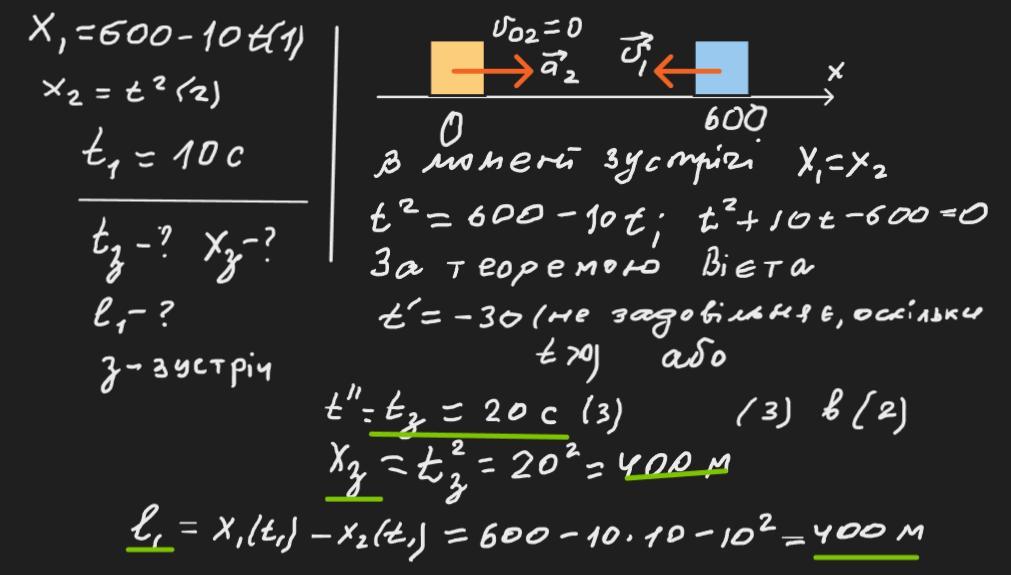 x₁ = 600 - 10t (1)
x₂ = t² (2)
t₁ = 10 c
tз - ? xз - ?
l₁ - ?
з - зустріч
υ₀₂ = 0
a⃗₂ υ⃗₁ x
0 600
В момент зустрічі x₁ = x₂
t² = 600 - 10t; t² + 10t - 600 = 0
За теоремою Вієта
t' = -30 (не задовільняє, оскільки
t > 0) або
t'' = tз = 20 c (3) (3) в (2)
xз = tз² = 20² = 400 м
l₁ = x₁(t₁) - x₂(t₁) = 600 - 10·10 - 10² = 400 м